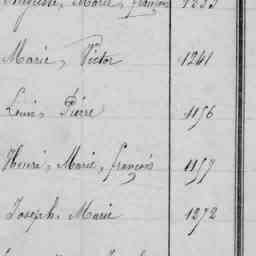 Auguste, Marie, françois 1233
Marie, Victor 1241
Louis Pierre 1156
Henri, Marie, françois 1157
Joseph, Marie 1272